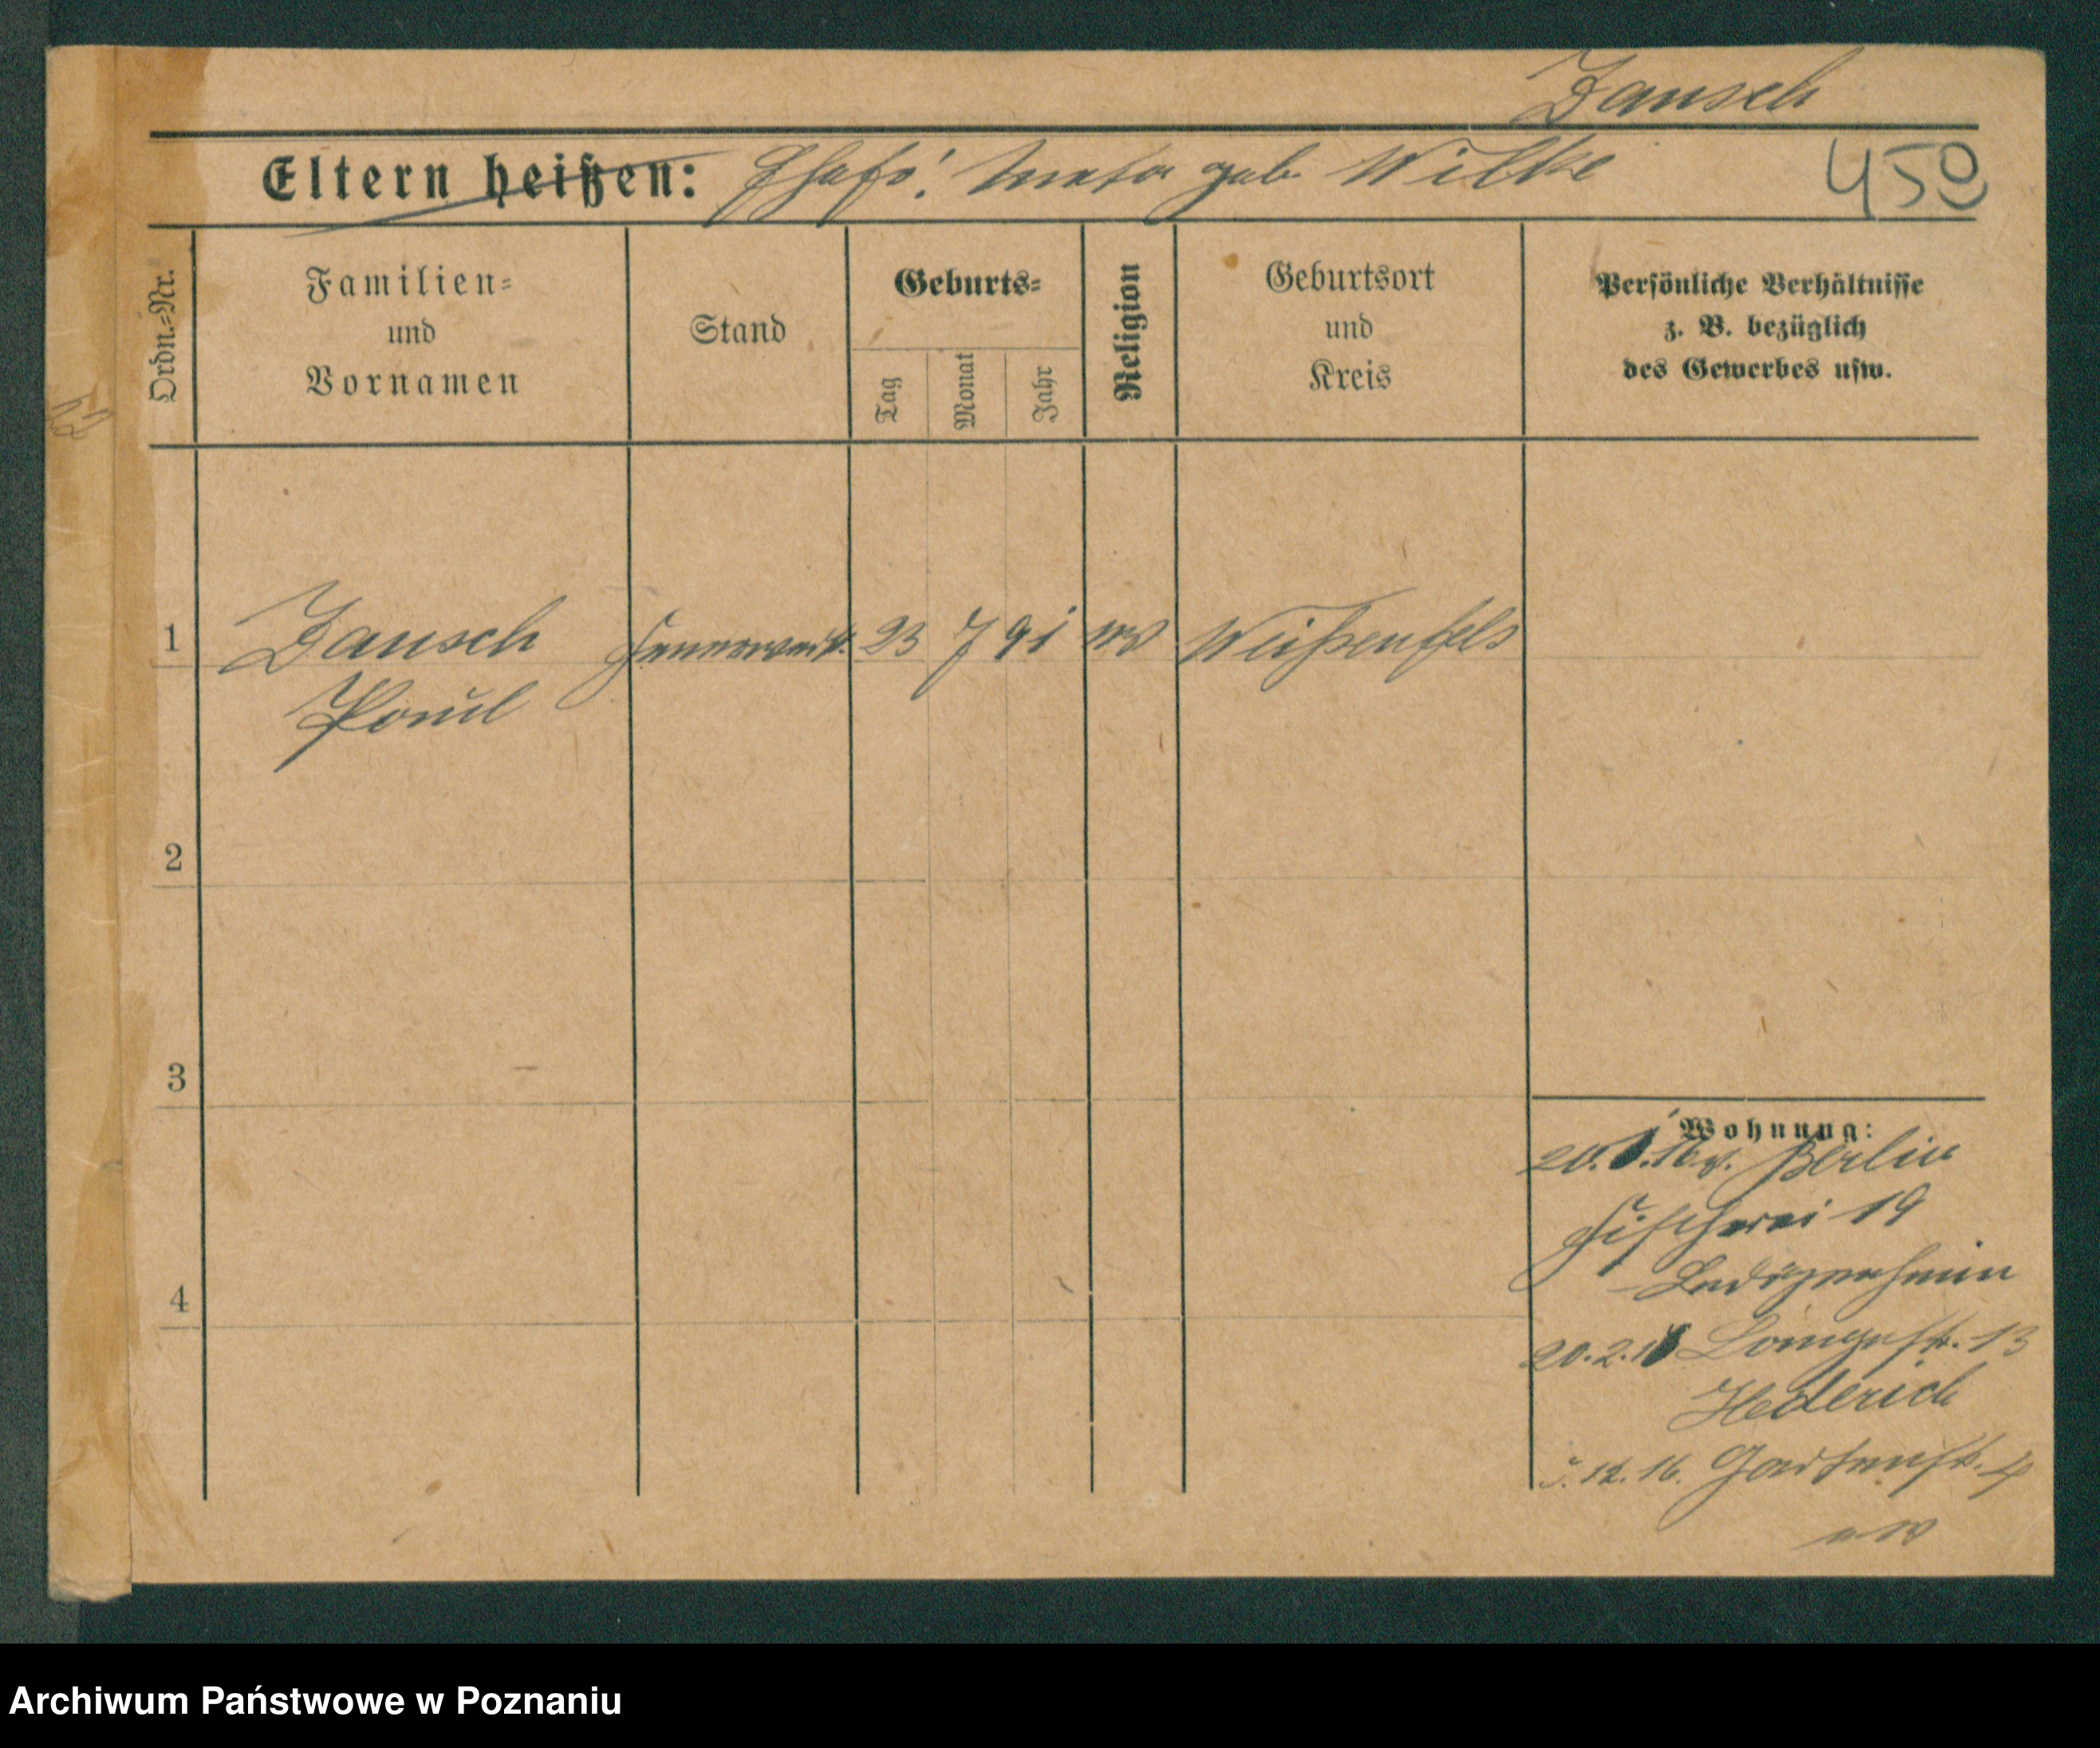 Jausch
Eltern heißen: Ehefr: Meta geb. Wilke
450
Ordn.=Nr.
Familien=
und
Vornamen
Stand
Geburts=
Tag
Monat
Jahr
Religion
Geburtsort
und
Kreis
Persönliche Verhältnisse
z. B. bezüglich
des Gewerbes usw.
1
Jausch
Paul
23 7 91 ev Weißenfels
2
3
4
Wohnung:
Berlin
Fischerei 19
Ledigenheim
20.2. Langestr. 13
Hederich
12.16. Gartenstr.
Archiwum Państwowe w Poznaniu